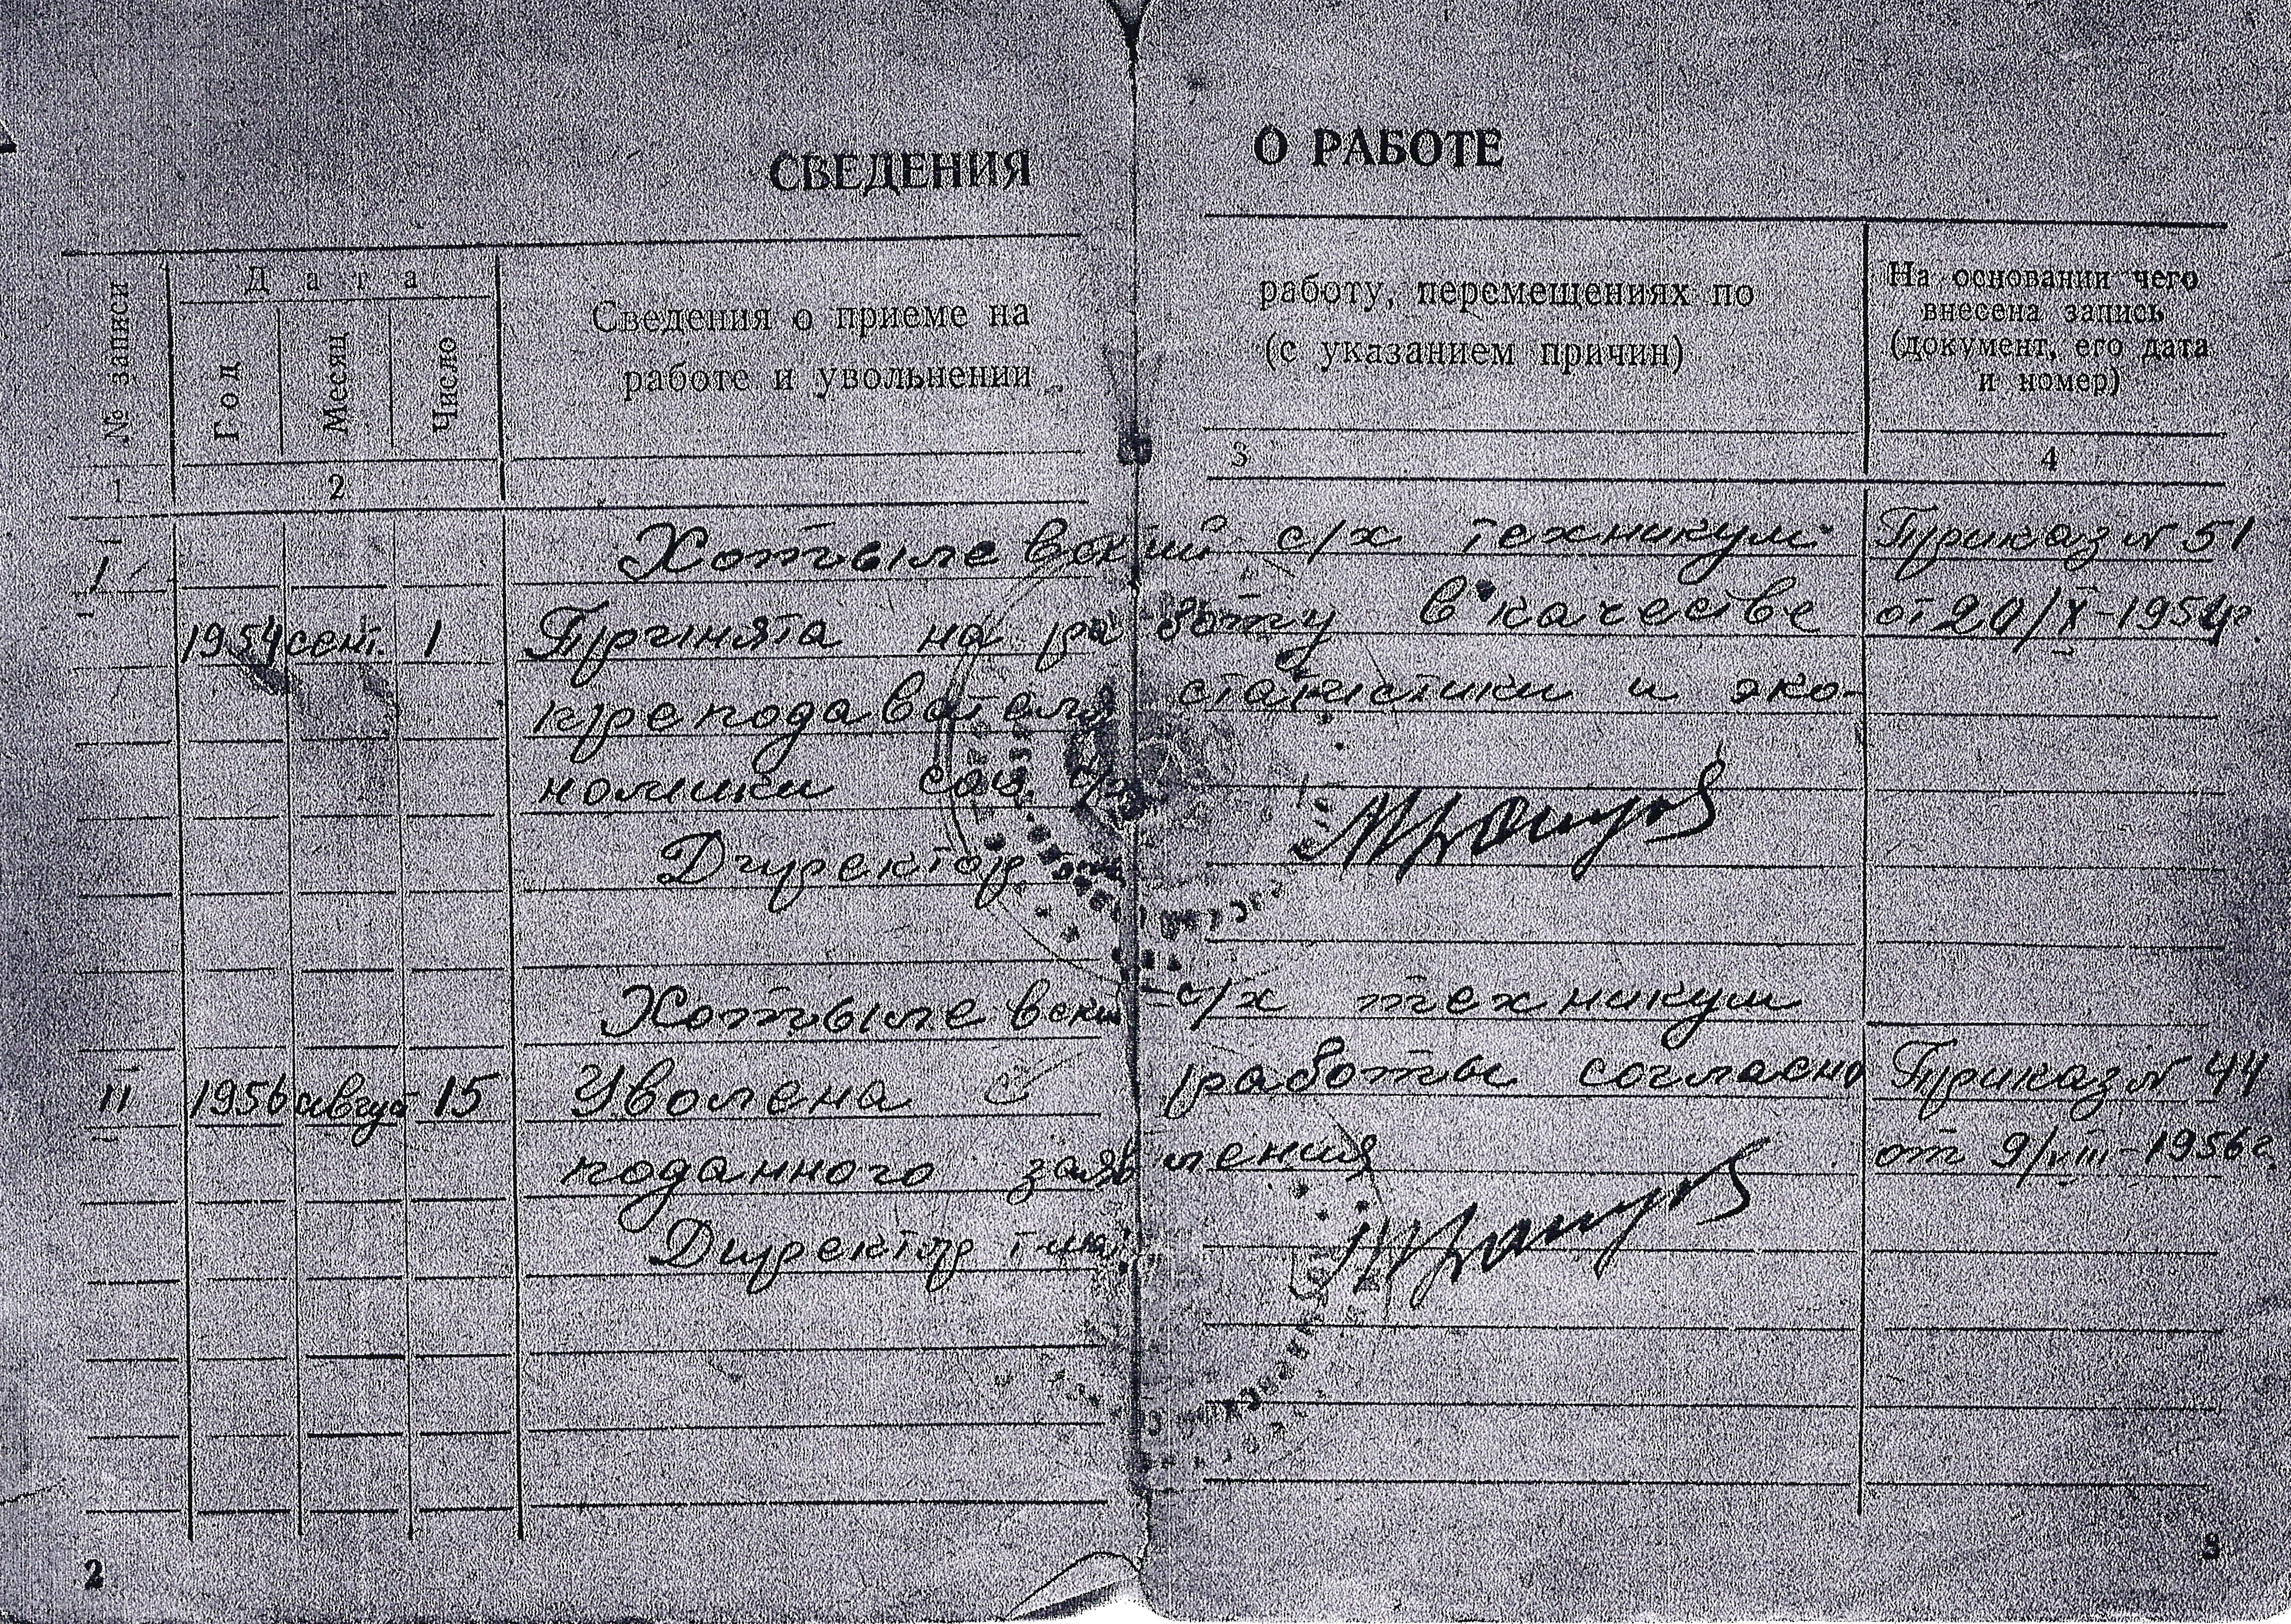 СВЕДЕНИЯ О РАБОТЕ
№ записи
Дата
Год
Месяц
Число
Сведения о приеме на работу, перемещениях по
работе и увольнении (с указанием причин)
На основании чего
внесена запись
(документ, его дата
и номер)
1 2 3 4
Хотылевский с/х техникум Приказ № 51
I
1954 сент. 1 Принята на работу в качестве от 20/X-1954г.
преподавателя статистики и эко-
номики соц. с/х
Директор
Хотылевский с/х техникум
II 1956 август 15 Уволена с работы согласно Приказ № 44
поданного заявления от 9/VIII-1956г.
Директор т-ма
2 3